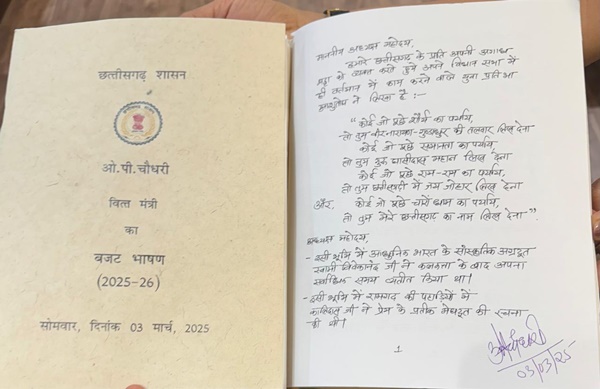 छत्तीसगढ़ शासन
ओ.पी.चौधरी
वित्त मंत्री
का
बजट भाषण
(2025-26)
सोमवार, दिनांक 03 मार्च, 2025
माननीय अध्यक्ष महोदय,
हमारे छत्तीसगढ़ के प्रति अपनी अगाध
श्रद्धा को व्यक्त करते हुये अपने विधान सभा में
ही वर्तमान में काम करने वाले युवा प्रतिभा
ने लिखा है :-
"कोई जो पूछे शौर्य का पर्याय,
तो तुम वीरनारायण-गुण्डाधुर की तलवार लिख देना
कोई जो पूछे समानता का पर्याय,
तो तुम गुरू घासीदास महान लिख देना
कोई जो पूछे राम-राम का पर्याय,
तो तुम छत्तीसगढ़ी में जय जोहार लिख देना
और, कोई जो पूछे चारों धाम का पर्याय,
तो तुम मेरे छत्तीसगढ़ का नाम लिख देना".
अध्यक्ष महोदय,
- इसी भूमि में आधुनिक भारत के सांस्कृतिक अग्रदूत
स्वामी विवेकानंद जी ने कलकत्ता के बाद अपना
सर्वाधिक समय व्यतीत किया था।
- इसी भूमि में रामगढ़ की पहाड़ियों में
कालिदास जी ने प्रेम के प्रतीक मेघदूत की रचना
की थी।
1
03/03/25